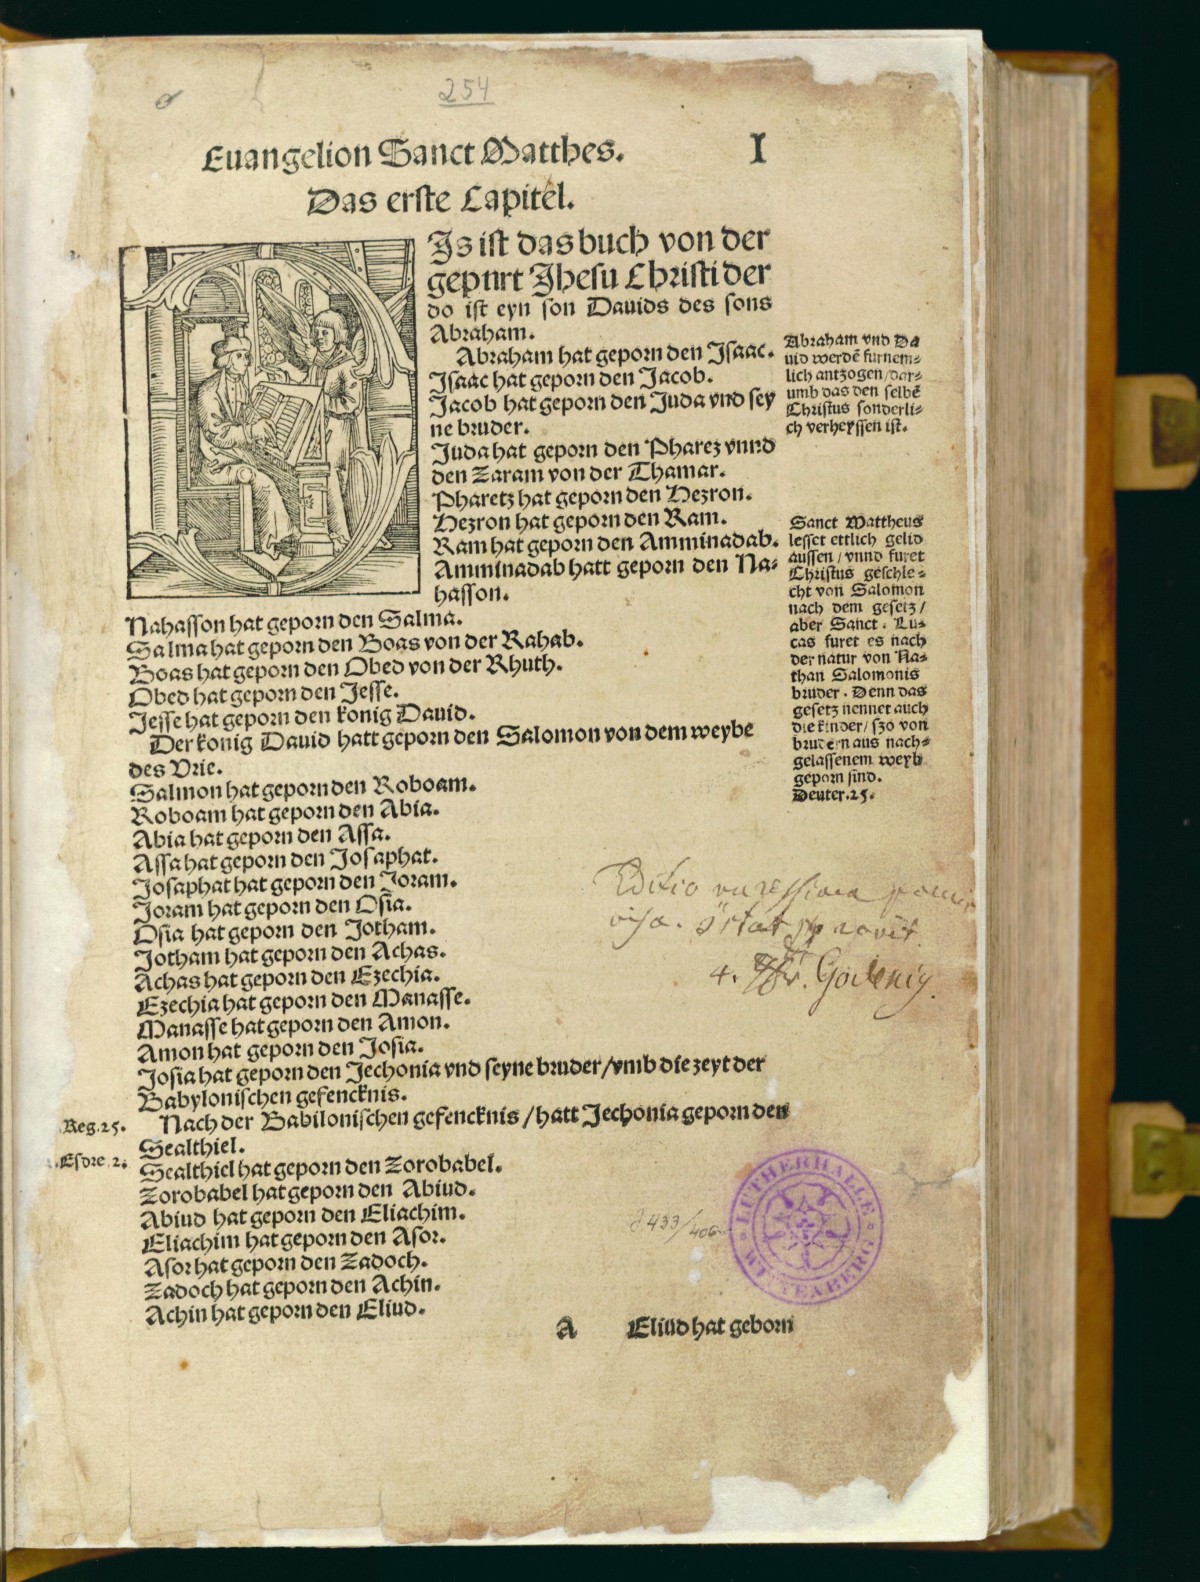 254
Euangelion Sanct Matthes. I
Das erste Capitel.
DJs ist das buch von der
gepurt Jhesu Christi der
do ist eyn son Dauids des sons
Abraham.
Abraham hat geporn den Jsaac.
Jsaac hat geporn den Jacob.
Jacob hat geporn den Juda vnd sey
ne bruder.
Juda hat geporn den Pharez vnnd
den Zaram von der Thamar.
Pharetz hat geporn den Hezron.
Hezron hat geporn den Ram.
Ram hat geporn den Amminadab.
Amminadab hatt geporn den Na⸗
hasson.
Nahasson hat geporn den Salma.
Salma hat geporn den Boas von der Rahab.
Boas hat geporn den Obed von der Rhuth.
Obed hat geporn den Jesse.
Jesse hat geporn den konig Dauid.
Der konig Dauid hatt geporn den Salomon von dem weybe
des Vrie.
Salmon hat geporn den Roboam.
Roboam hat geporn den Abia.
Abia hat geporn den Assa.
Assa hat geporn den Josaphat.
Josaphat hat geporn den Joram.
Joram hat geporn den Osia.
Osia hat geporn den Jotham.
Jotham hat geporn den Achas.
Achas hat geporn den Ezechia.
Ezechia hat geporn den Manasse.
Manasse hat geporn den Amon.
Amon hat geporn den Josia.
Josia hat geporn den Jechonia vnd seyne bruder /vmb die zeyt der
Babylonischen gefencknis.
Nach der Babilonischen gefencknis /hatt Jechonia geporn den
Sealthiel.
Sealthiel hat geporn den Zorobabel.
Zorobabel hat geporn den Abiud.
Abiud hat geporn den Eliachim.
Eliachim hat geporn den Asor.
Asor hat geporn den Zadoch.
Zadoch hat geporn den Achin.
Achin hat geporn den Eliud.
A Eliud hat geborn
Abraham vnd Da
uid werdẽ furnem⸗
lich antzogen/dar⸗
umb das den selbẽ
Christus sonderli⸗
ch verheyssen ist.
Sanct Mattheus
lesset ettlich gelid
aussen/vnnd furet
Christus geschle⸗
cht von Salomon
nach dem gesetz/
aber Sanct. Lu⸗
cas furet es nach
der natur von Na⸗
than Salomonis
bruder. Denn das
gesetz nennet auch
die kinder/szo von
brudern aus nach⸗
gelassenem weyb
geporn sind.
Deuter.25.
Reg.25.
Esdre.2.
Editio
visa.
433/406
LUTHERHALLE
WITTENBERG